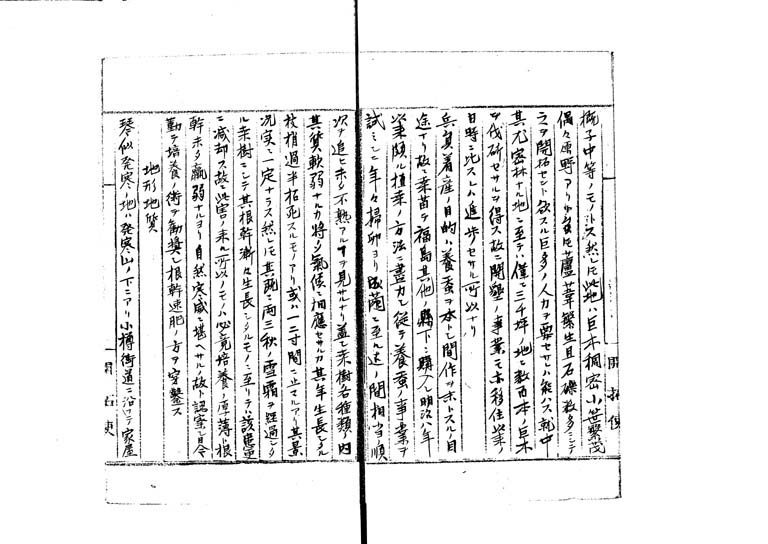 概子中等ノモノトス然レ𪜈此地ハ巨木稠密小葉繁茂
偶々原野アリ少ナカラサレ𪜈蘆葦繁生且石礫数多ニシテ
之ヲ開拓セント欲スル巨多ノ人力ヲ要セサルハ能ハス就中
其尤密林ナル地ニ至テハ僅ニ三千坪ノ地ニ数百本ノ巨木
ヲ伐斫セサルヲ得ス故ニ開墾ノ事業モ亦移住以来ノ
日時ニ比スレハ進歩セサル所以ナリ
兵員着産ノ目的ハ養蚕ヲ本トシ間作ヲ末トスルノ目
途ナリ故ニ桑苗ヲ福島其他ノ縣下ニ購入明治八年
以来頗ル植桑ノ方法ニ盡力シ従テ養蚕ノ事業ヲ
試ミシニ年々掃卵ヨリ成繭ニ至ル迄ノ間相当順
次ヲ追ヒ未タ不熟アルヲ見サルナリ蓋シ桑樹各種類ノ内
其質軟弱ナルカ将タ氣候ニ相應セサルカ其年生長シタル
枝梢過半枯死スルモノアリ或ハ一二寸間ニ止マルアリ其景
況実ニ一定ナラス然レ𪜈其既ニ両三秋ノ雪霜ヲ経過シタ
ル桑樹ニシテ其根幹漸々生長シタルモノニ至リテハ該患
ニ減却ス故ニ此害ノ来ル所以ノモノハ必竟培養ノ厚薄ト根
幹未タ羸弱ナルヨリ自然寒威ニ堪ヘサルノ故ト認定シ目今
勤テ培養ノ術ヲ勧奨シ根幹速肥ノ方ヲ穿鑿ス
地形地質
琴似発寒ノ地ハ発寒山ノ下ニアリ小樽街道ニ沿ヒテ家屋
開拓使
開拓使